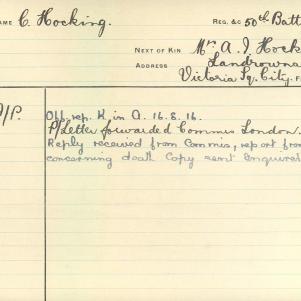 NAME C. Hocking. REG. &c 50th Batt
NEXT OF KIN Mr. A. J. Hock
ADDRESS Landrowna
Victoria Sq. City. F
/P. Off. rep. K in A. 16.8.16.
P/Letter forwarded Commis London.
Reply received from Commis, report from
concerning death Copy sent Enquirer